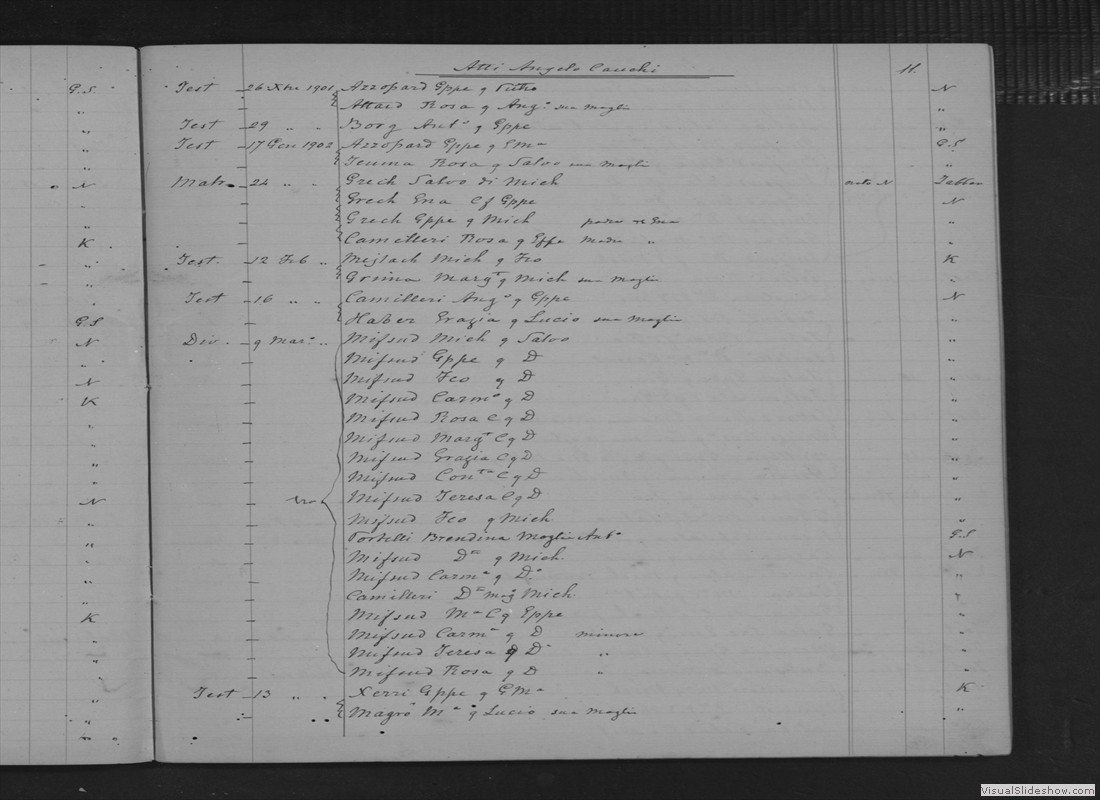 Atti Angelo Cauchi
11.
G.S Test 26 Xbre 1901 Azzopard Gppe q Pietro N
„ Attard Rosa q Ang.o sua moglie „
„ Test 29 „ „ Borg Ant.o q Gppe „
„ Test 17 Gen 1902 Azzopard Gppe q GMa G.S
„ Rosa q Salvo sua moglie „
N Matr. 24 „ „ Grech Salvo di Mich nato N
„ Grech Gppe N
„ Grech Gppe q Mich padre „
K Camilleri Rosa q Gppe madre „ „
„ Test. 12 Feb „ Mejlach Mich q Fco K
„ Marg.ta q Mich sua moglie „
„ Test 16 „ „ Camilleri Ang.o q Gppe N
G.S Haber Grazia q Lucio sua moglie „
N Div. 9 Mar.o „ Mifsud Mich q Salvo „
„ Mifsud Gppe q D „
N Mifsud Fco q D „
K Mifsud Carm.o q D „
„ Mifsud Rosa C q D „
„ Mifsud Marg.ta C q D „
„ Mifsud Grazia C q D „
„ Mifsud Con.ta C q D „
N Mifsud Teresa C q D „
„ Mifsud Fco q Mich „
„ Portelli Brendina Moglie Ant.o G.S
„ Mifsud D.ca q Mich. N
„ Mifsud Carm.a q D.o „
„ Camilleri D.ca mog Mich „
K Mifsud M.a C q Gppe „
„ Mifsud Carm.a q D minore „
„ Mifsud Teresa q D „ „
„ Mifsud Rosa q D „ „
„ Test 13 „ „ Xerri Gppe q GMa K
„ Magro M.a q Lucio sua moglie „
VisualSlideshow.com